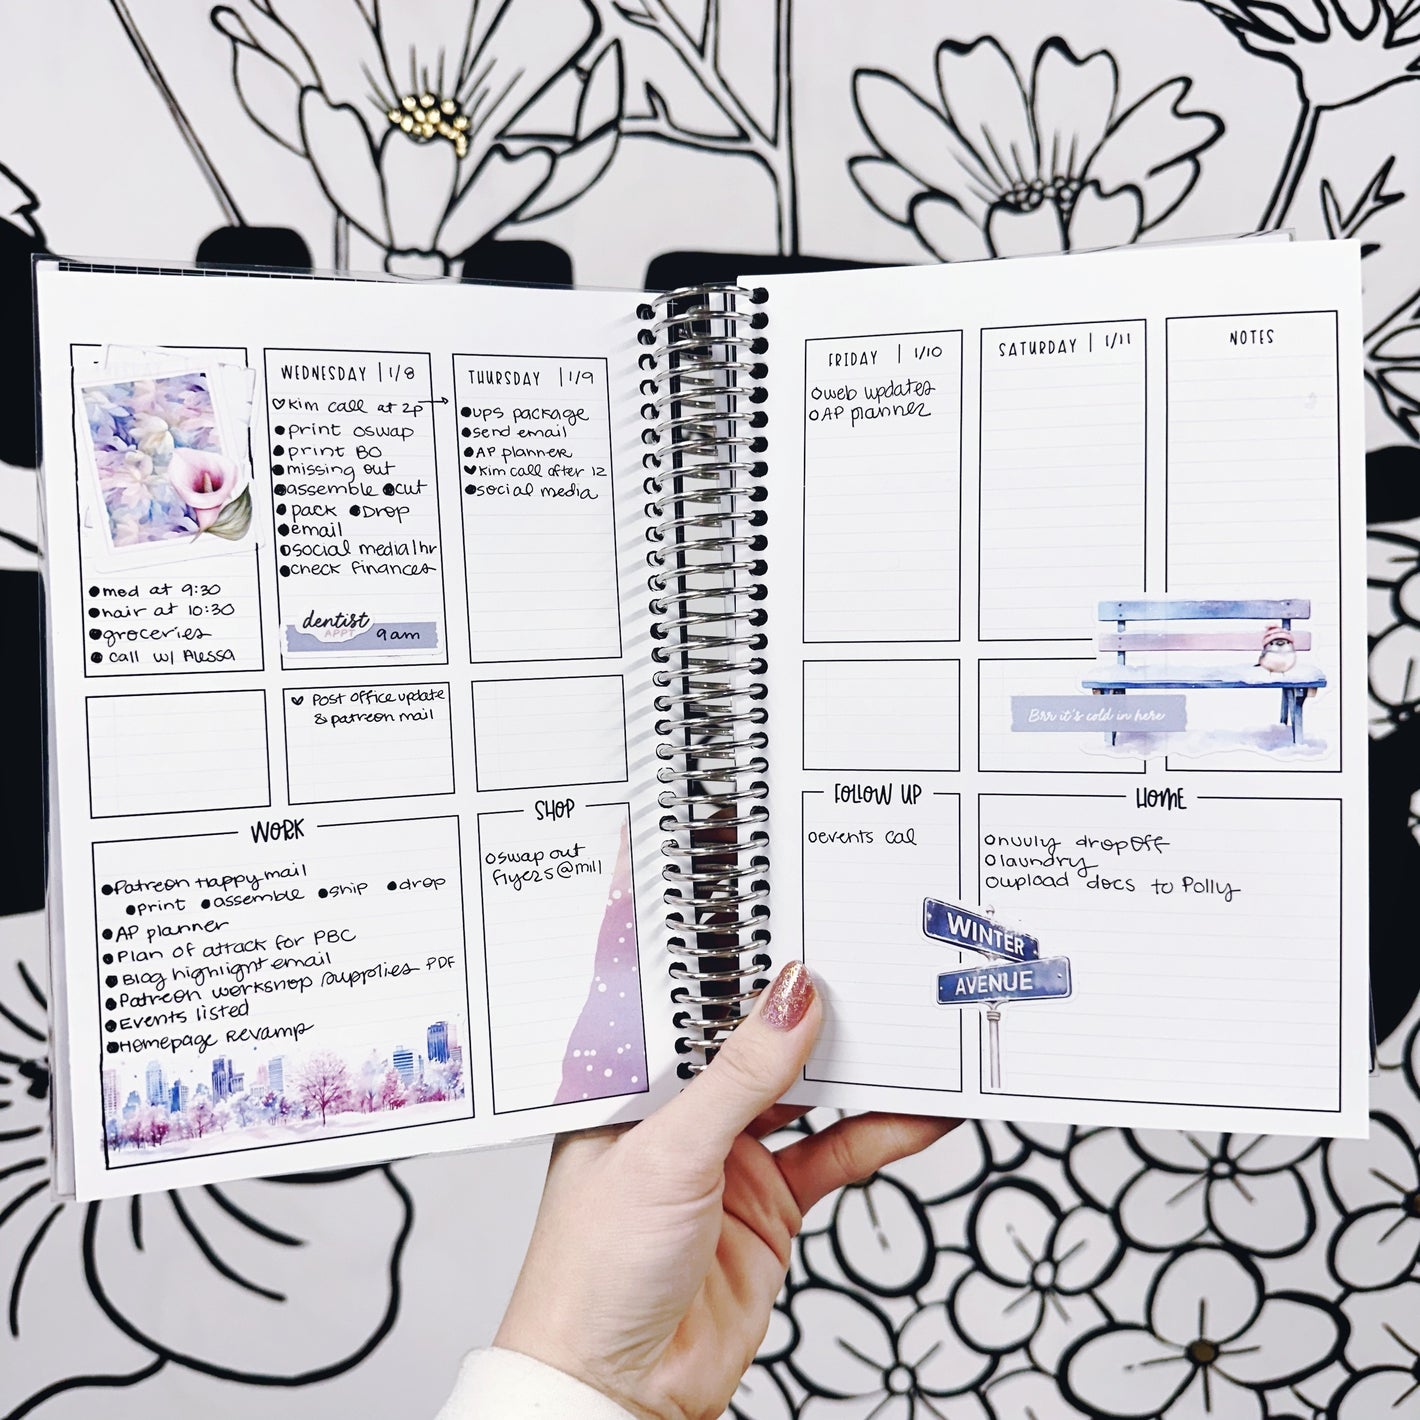 ● med at 9:30
● hair at 10:30
● groceries
● call w/ Alessa
WEDNESDAY | 1/8
♡ Kim call at 2p →
● print oswap
● print BO
● missing out
● assemble ● cut
● pack ● Drop
● email
○ social media 1hr
● check finances
dentist
APPT
9am
♥ Post office update
& patreon mail
THURSDAY | 1/9
● ups package
● send email
● AP planner
♥ Kim call after 12
● social media
WORK
● Patreon Happy mail
● print ● assemble ● ship ● drop
● AP planner
● Plan of attack for PBC
● Blog highlight email
● Patreon workshop supplies PDF
● Events listed
● Homepage Revamp
SHOP
○ swap out
flyers @ mill
FRIDAY | 1/10
○ web updates
○ AP planner
SATURDAY | 1/11
NOTES
Brr it's cold in here
FOLLOW UP
○ events cal
HOME
○ nuuly drop off
○ laundry
○ upload docs to Polly
WINTER
AVENUE